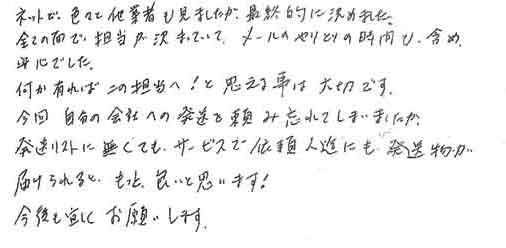 ネットで、色々と他業者も見ましたが、最終的に決めれた。
全ての面で、担当が決まっていて、メールのやりとりの時間も、含め、
安心でした。
何か有ればこの担当へ!と思える事は大切です。
今回 自分の会社への発送を頼み忘れてしまいましたが、
発送リストに無くても、サービスで依頼人達にも、発送物が
届けられると、もっと、良いと思います!
今後も宜しくお願いします。